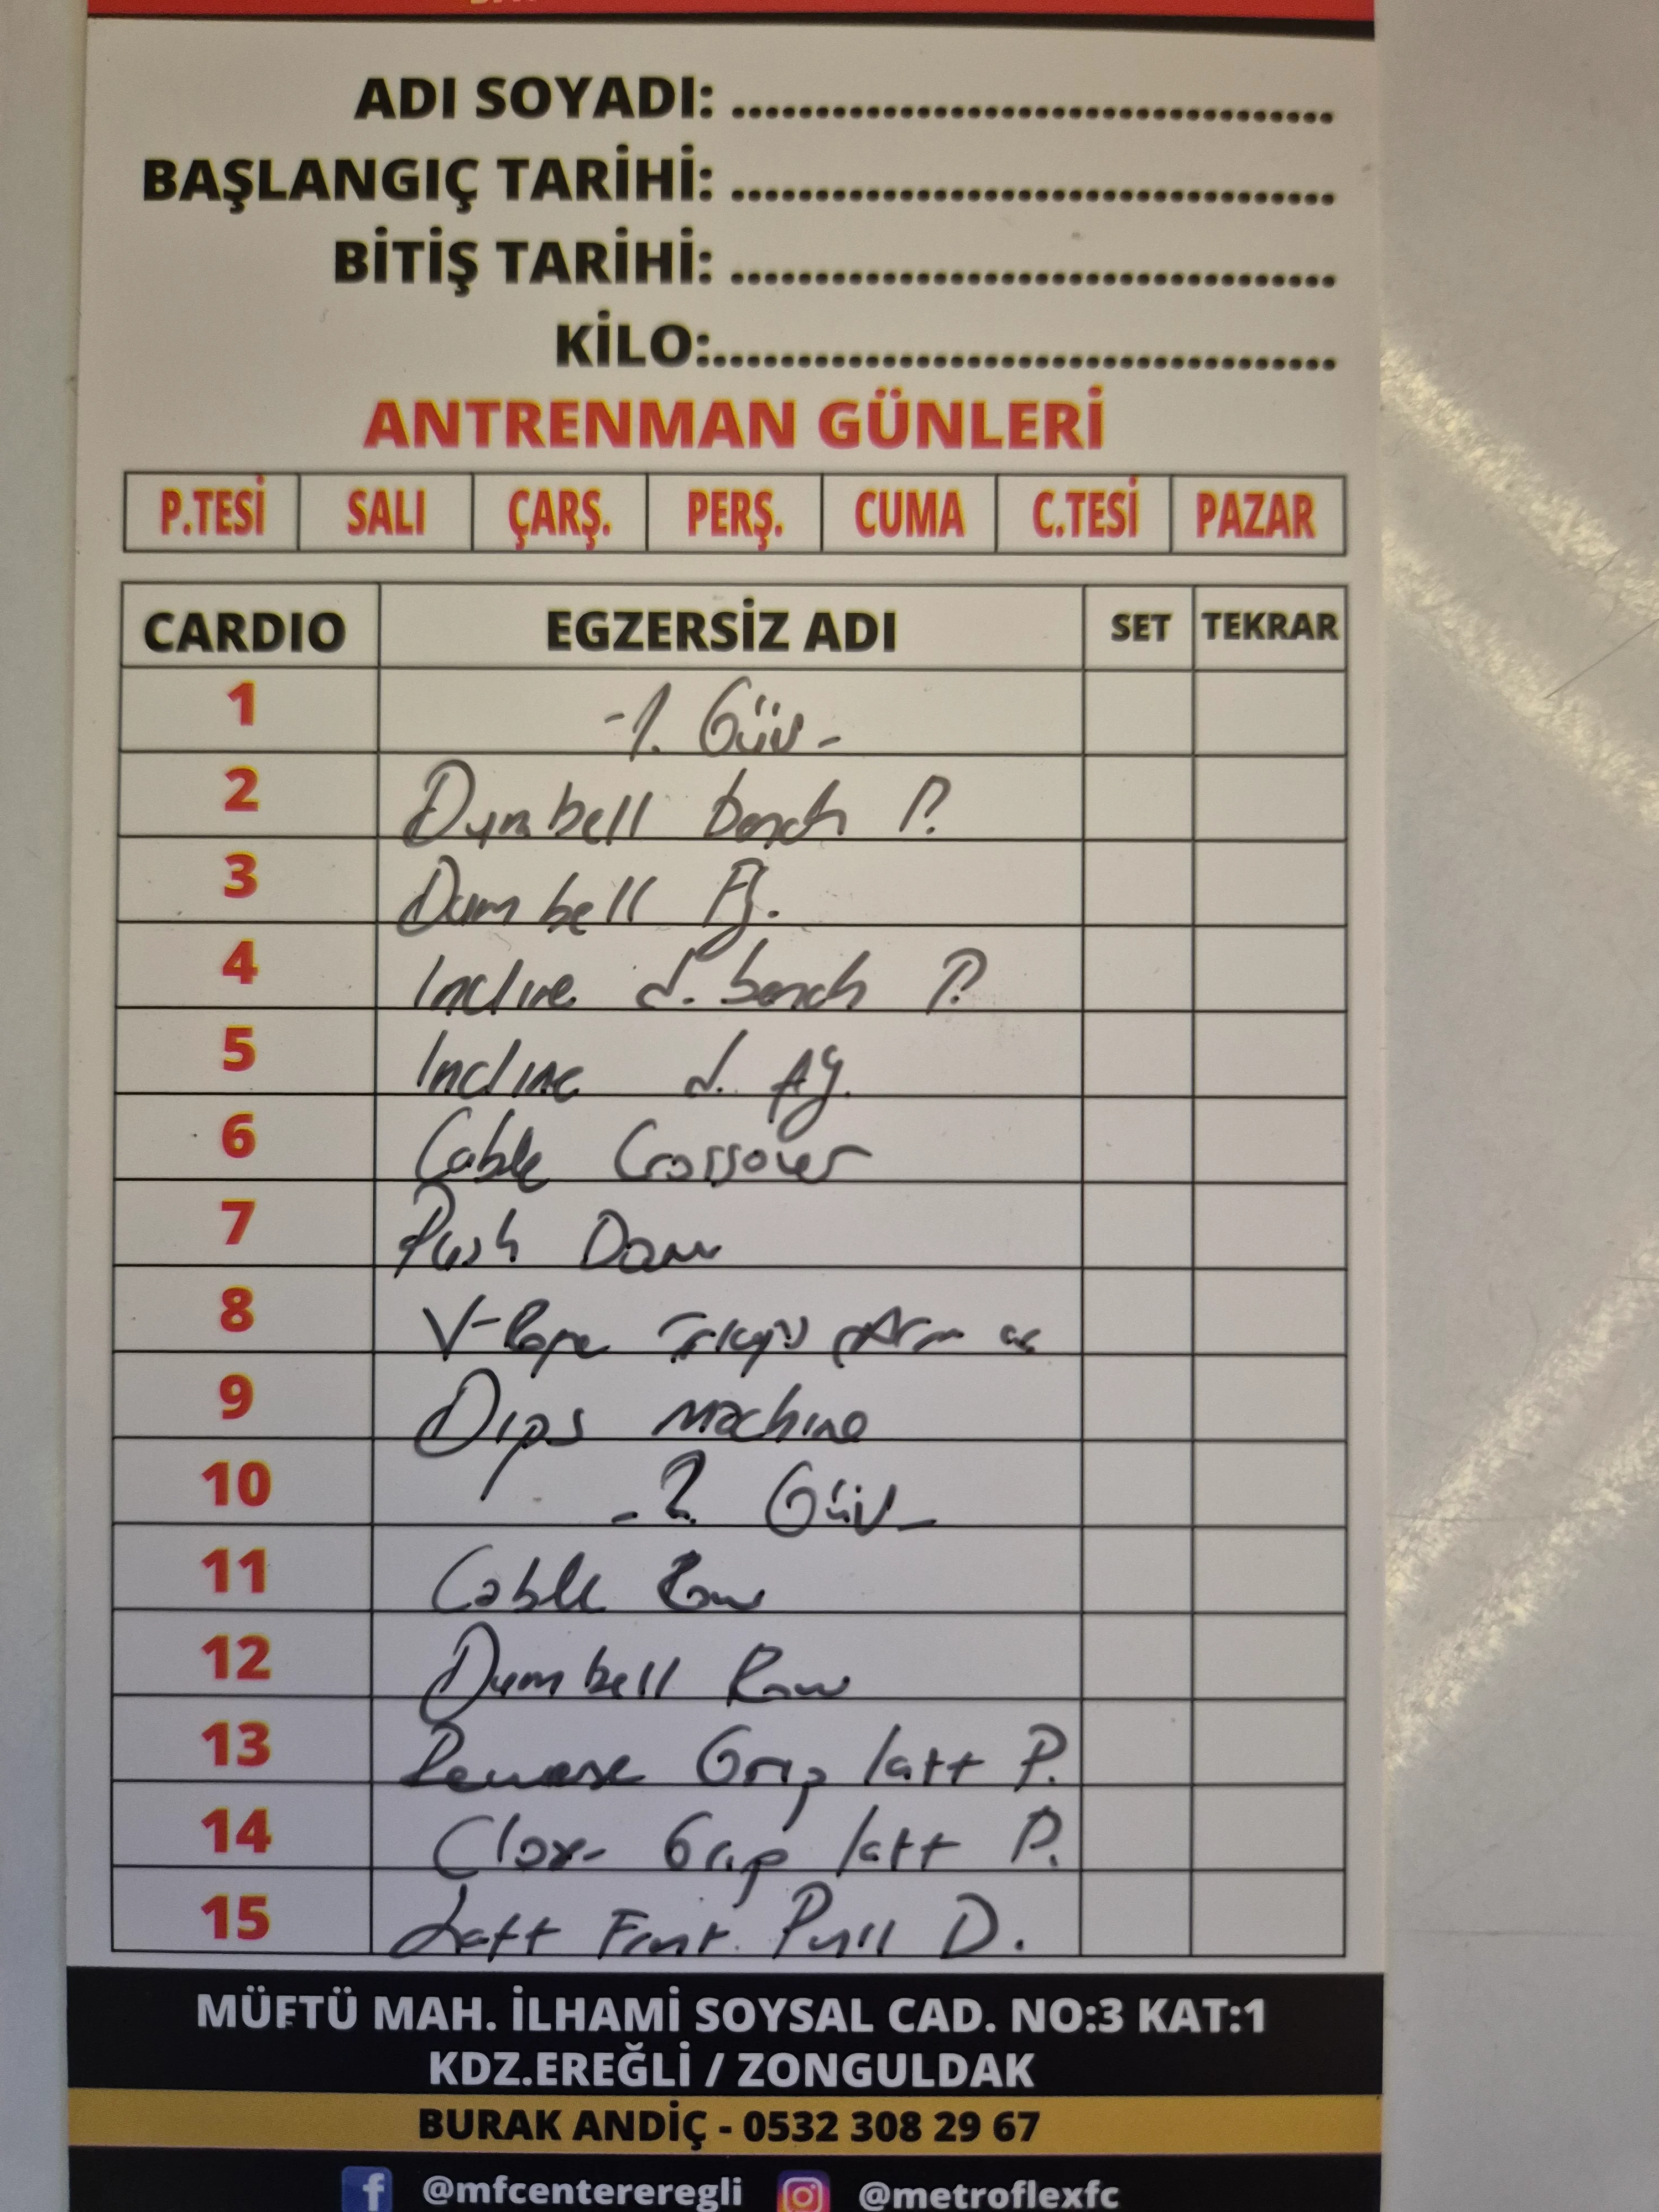 ADI SOYADI: ..................................
BAŞLANGIÇ TARİHİ: ..................................
BİTİŞ TARİHİ: ..................................
KİLO:...................................
ANTRENMAN GÜNLERİ
P.TESİ SALI ÇARŞ. PERŞ. CUMA C.TESİ PAZAR
CARDIO EGZERSİZ ADI SET TEKRAR
1 -1. Gün-
2 Dumbell bench P.
3 Dumbell Fly.
4 Incline d. bench P.
5 Incline d. fly.
6 Cable Crossover
7 Push Down
8 V-Rope
9 Dips machine
10 -2 Gün-
11 Cable Row
12 Dumbell Row
13 Reverse Grip latt P.
14 Close Grip latt P.
15 Latt Front Pull D.
MÜFTÜ MAH. İLHAMİ SOYSAL CAD. NO:3 KAT:1
KDZ.EREĞLİ / ZONGULDAK
BURAK ANDİÇ - 0532 308 29 67
@mfcentereregli @metroflexfc